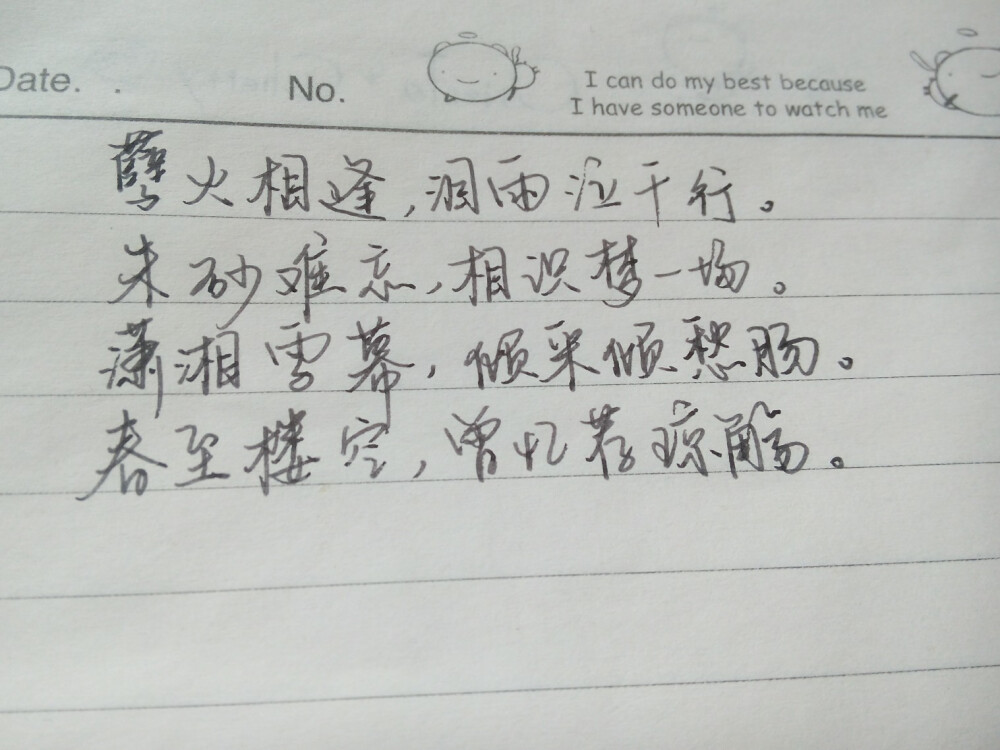 Date. . No.
I can do my best because
I have someone to watch me
孽火相逢,泪雨泣千行。
朱砂难忘,相识梦一场。
潇湘雪幕,倾采倾愁肠。
春至楼空,曾忆荐琼觞。